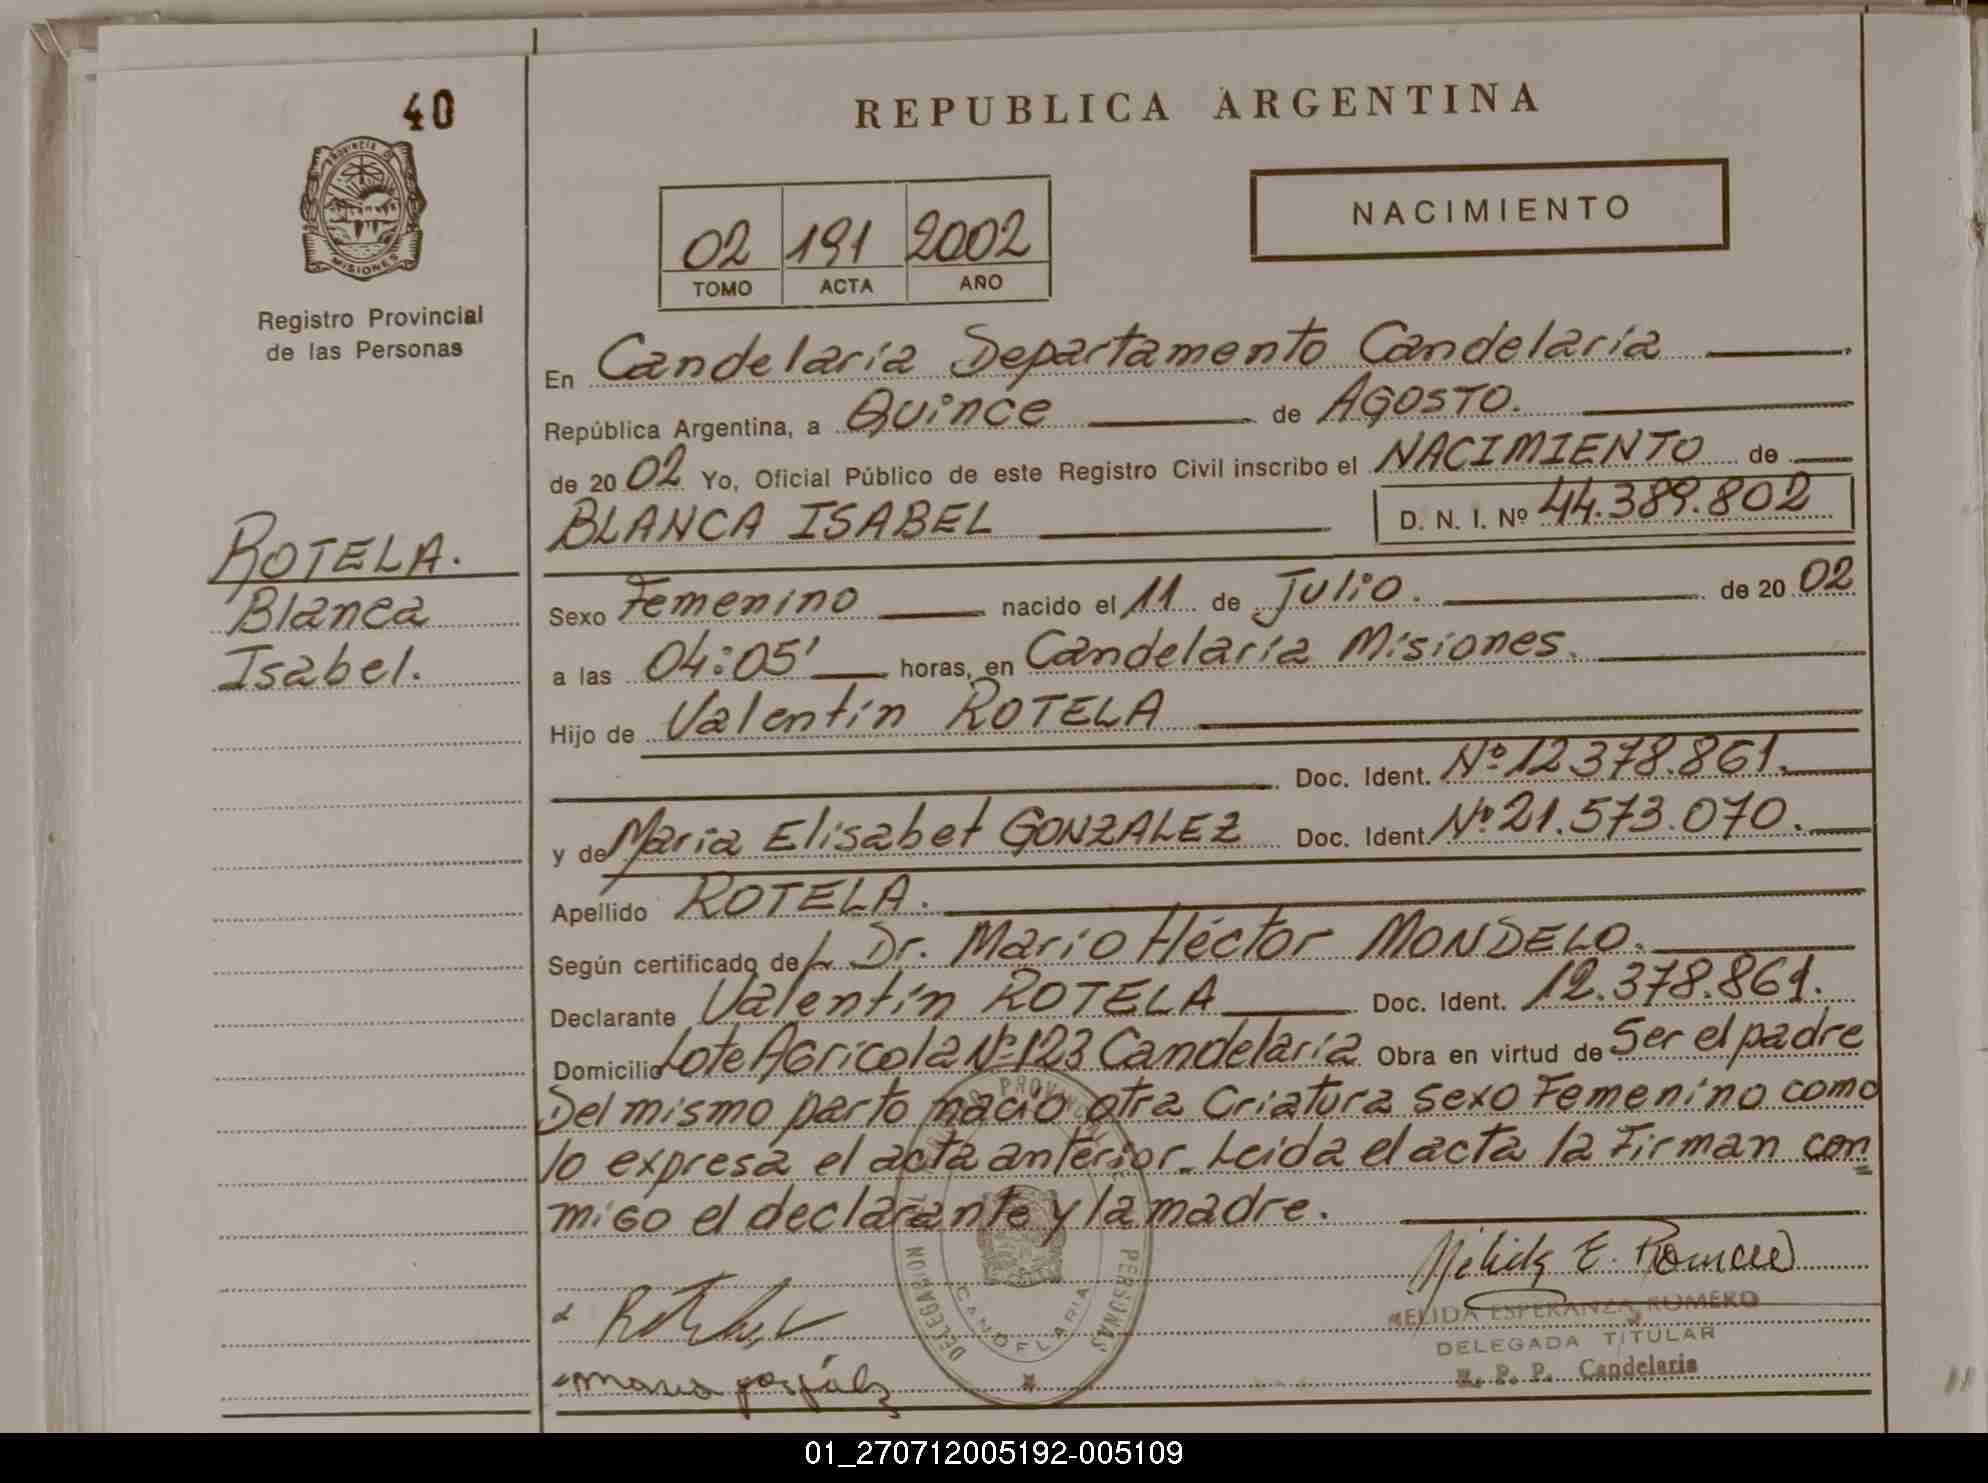 40
REPUBLICA ARGENTINA
PROVINCIA DE
MISIONES
Registro Provincial
de las Personas
NACIMIENTO
02 191 2002
TOMO ACTA AÑO
En Candelaria Departamento Candelaria
República Argentina, a Quince de AGOSTO.
de 20 02 Yo, Oficial Público de este Registro Civil inscribo el NACIMIENTO de
BLANCA ISABEL D. N. I. Nº 44.389.802
ROTELA.
Blanca
Isabel.
Sexo Femenino nacido el 11 de Julio. de 20 02
a las 04:05' horas, en Candelaria Misiones.
Hijo de Valentín ROTELA
Doc. Ident. Nº 12.378.861.
y de Maria Elisabet GONZALEZ Doc. Ident. Nº 21.573.070.
Apellido ROTELA.
Según certificado de Dr. Mario Héctor MONDELO.
Declarante Valentín ROTELA Doc. Ident. 12.378.861.
Domicilio Lote AGricola Nº 123 Candelaria Obra en virtud de Ser el padre
Del mismo parto nacio otra Criatura sexo Femenino como
lo expresa el acta anterior. Leida el acta la Firman con
miGo el declarante y la madre.
Nélida E. Romero
NELIDA ESPERANZA ROMERO
DELEGADA TITULAR
R. P. P. Candelaria
DELEGACION CANDELARIA PERSONAS
01_270712005192-005109